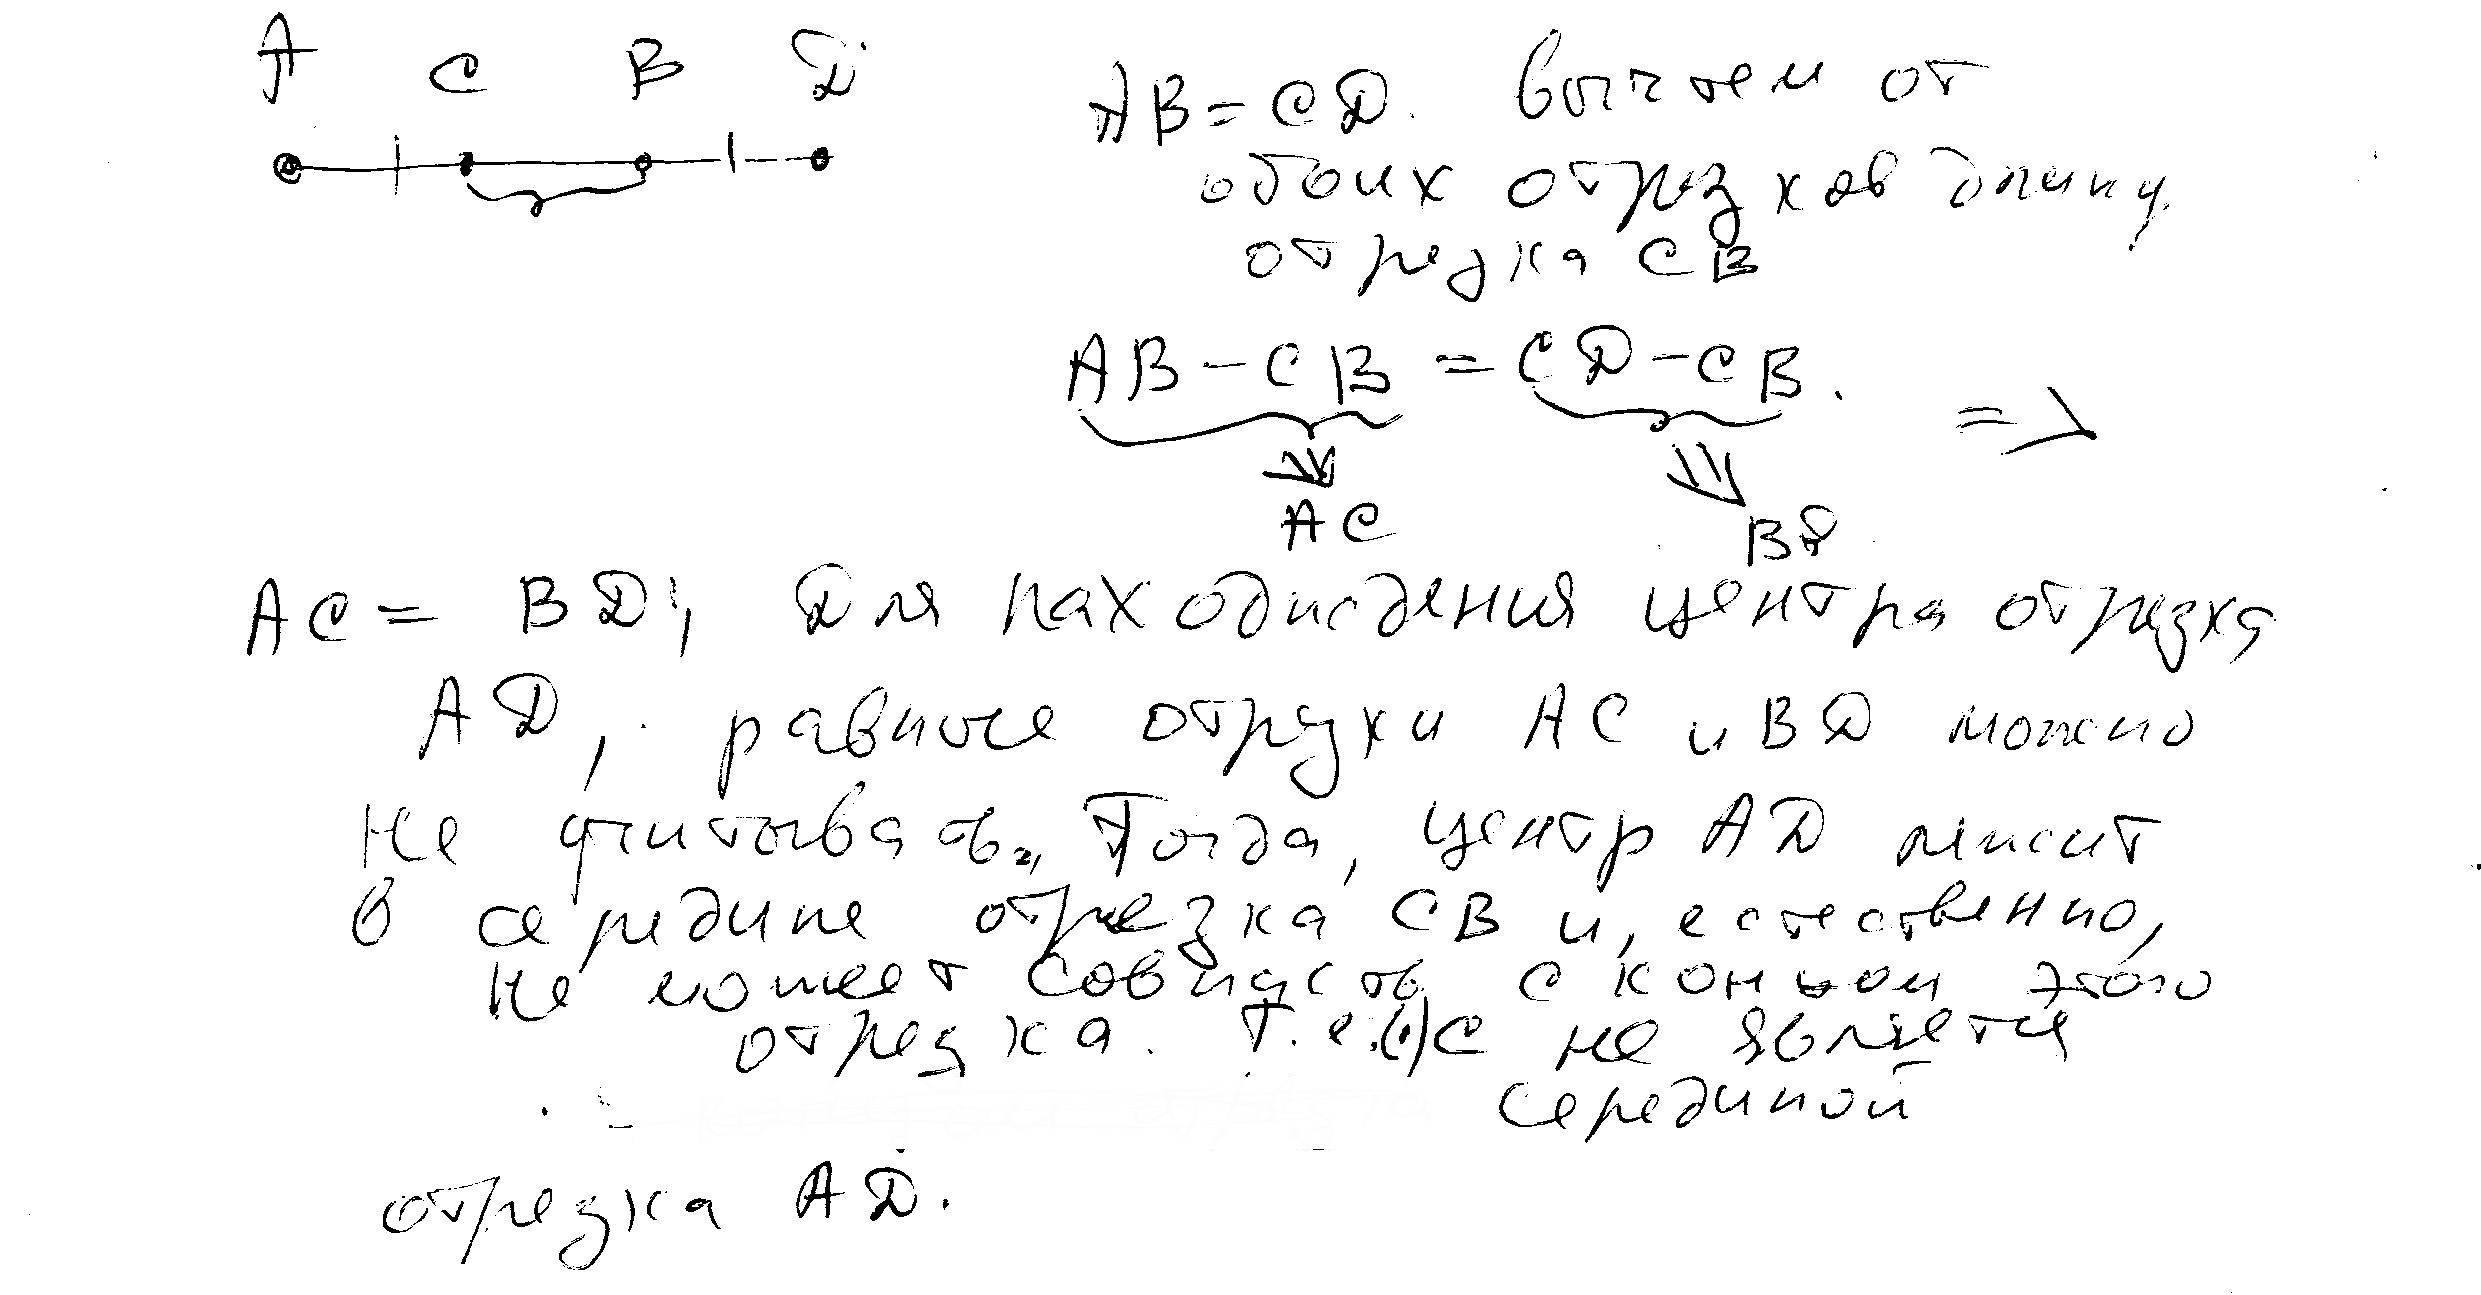 A C B D
AB = CD. Вычтем от
обоих отрезков длину
отрезка CB
AB - CB = CD - CB. =>
AC BD
AC = BD; Для нахождения центра отрезка
AD, равные отрезки AC и BD можно
не учитывать. Тогда, центр AD лежит
в середине отрезка CB и, естественно,
не может совпасть с концом этого
отрезка. Т.е. (.) C не является
серединой
отрезка AD.